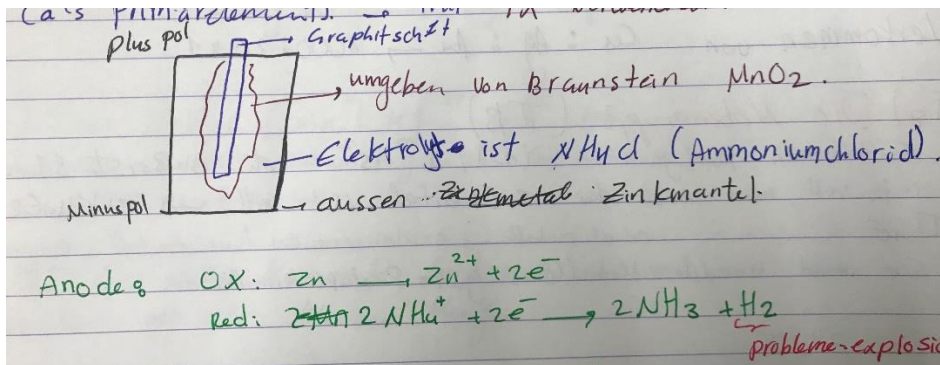 Plus pol
Graphitschift
umgeben von Braunstein MnO2.
Elektrolyt ist NH4Cl (Ammoniumchlorid).
Minuspol
aussen Zinkmantel.
Anode: OX: Zn → Zn²⁺ + 2e⁻
Red: 2 NH4⁺ + 2e⁻ → 2 NH3 + H2